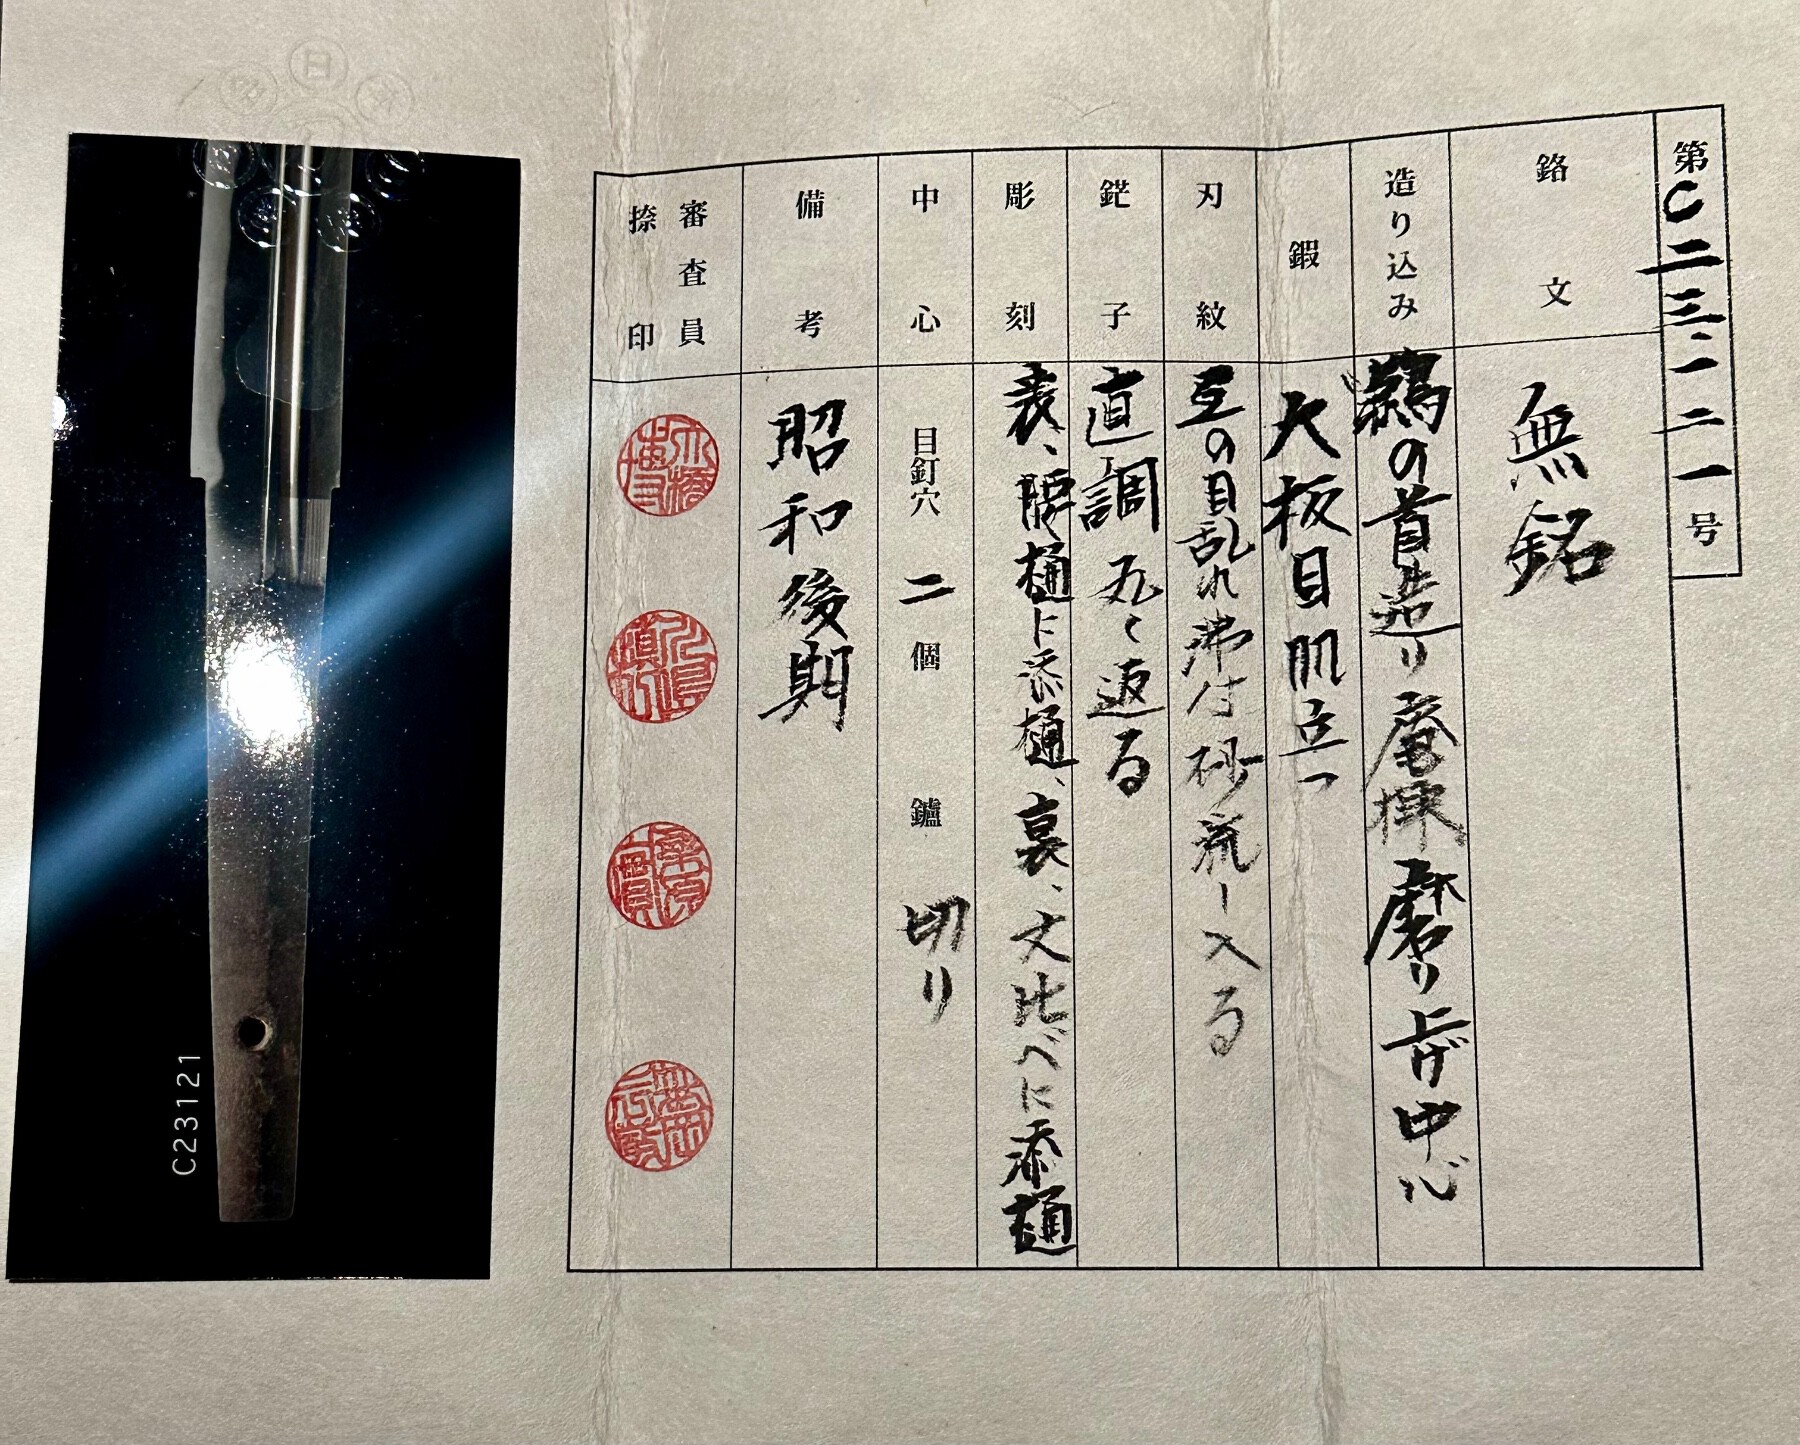 第C二三一二一号
銘文
無銘
造り込み
鵜の首造り庵棟磨り上げ中心
鍛
大板目肌立つ
刃紋
互の目乱れ沸付砂流し入る
鋩子
直調丸く返る
彫刻
表、腰樋に添樋、裏、丈比べに添樋
中心
目釘穴 二 個 鑢 切り
備考
昭和後期
審査員
捺印
C23121